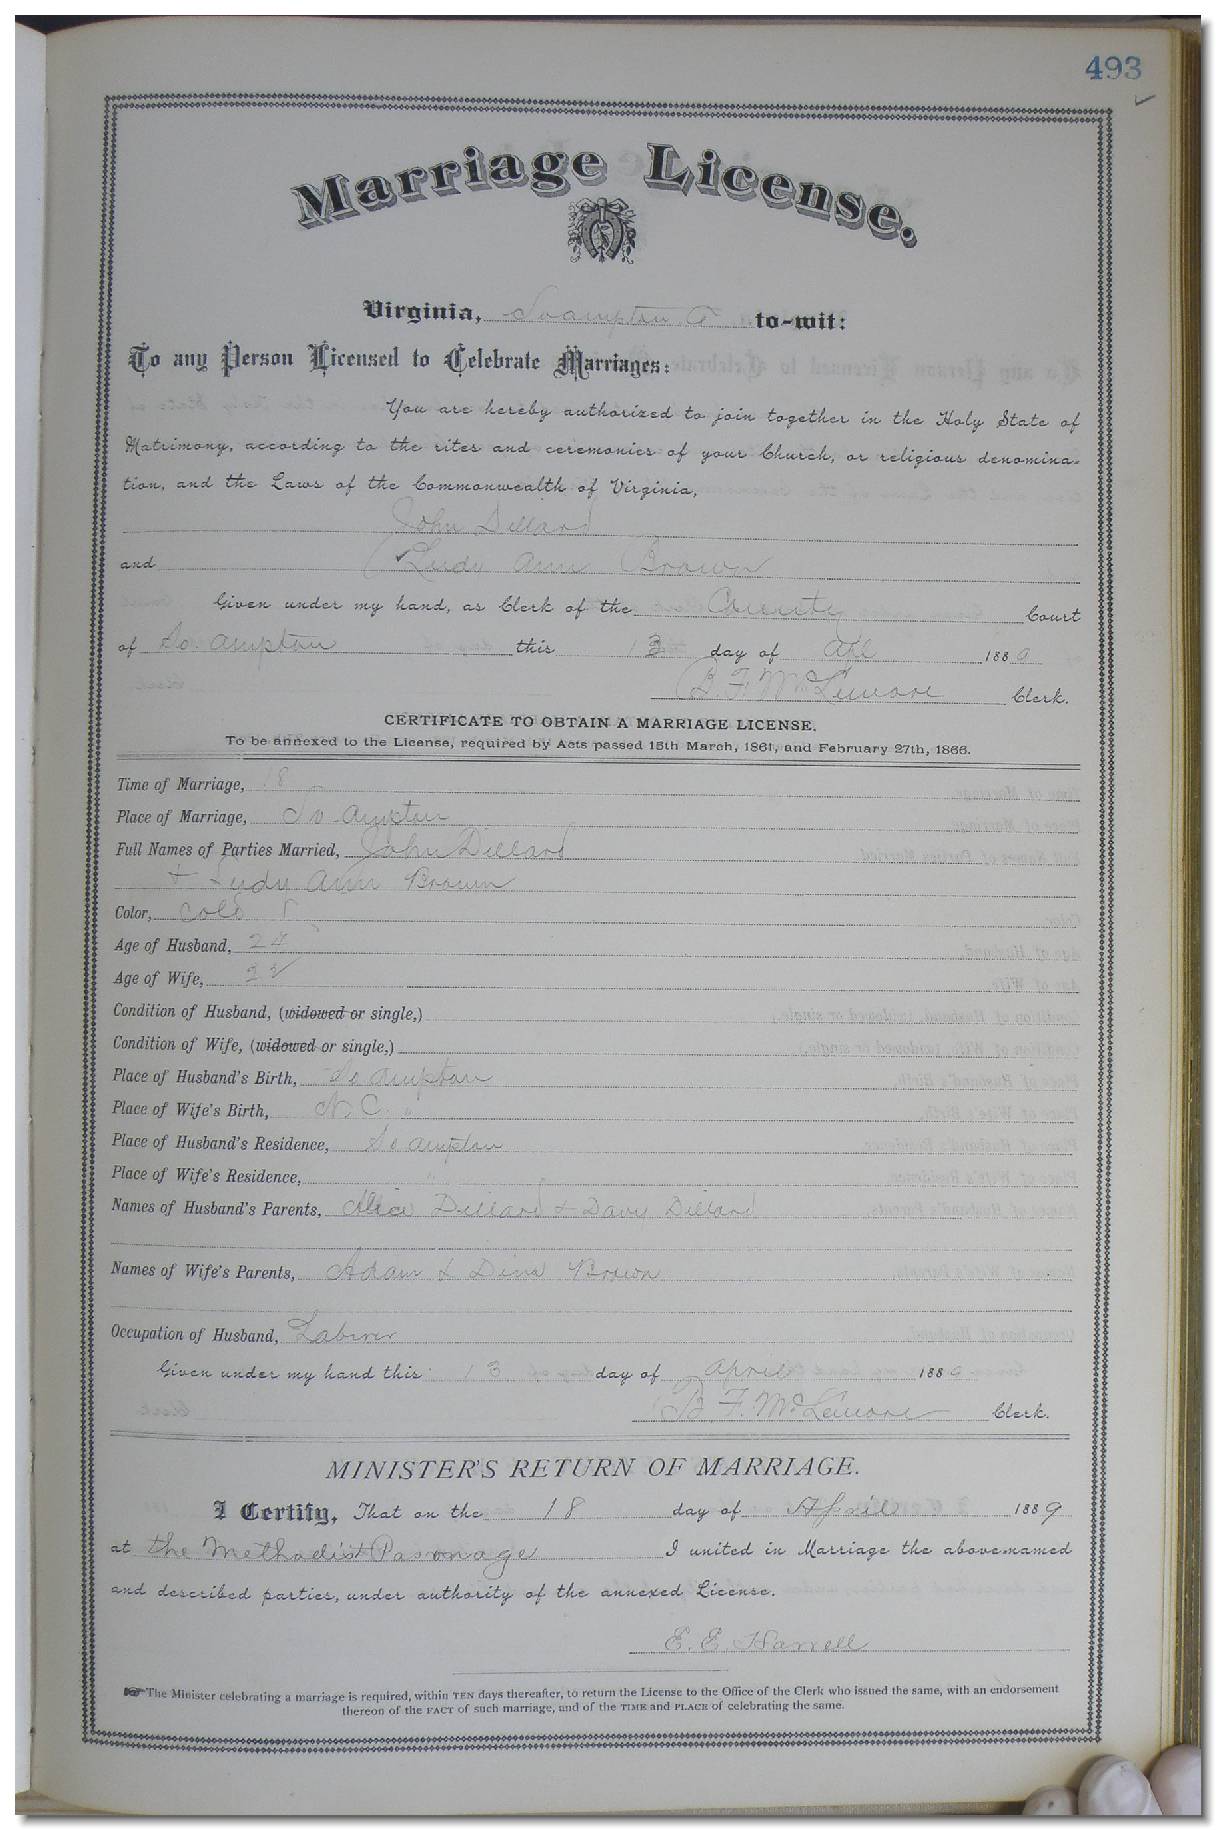 493
Marriage License.
Virginia, Soampton Co to-wit:
To any Person Licensed to Celebrate Marriages:
You are hereby authorized to join together in the Holy State of
Matrimony, according to the rites and ceremonies of your Church, or religious denomina-
tion, and the Laws of the Commonwealth of Virginia,
John Dillard
and Ludy Ann Brown
Given under my hand, as Clerk of the County Court
of So.ampton this 13 day of Apl 1889
B. F. McLemore Clerk.
CERTIFICATE TO OBTAIN A MARRIAGE LICENSE.
To be annexed to the License, required by Acts passed 15th March, 1861, and February 27th, 1866.
Time of Marriage, 18
Place of Marriage, So-ampton
Full Names of Parties Married, John Dillard
+ Lydy Ann Brown
Color, Cold
Age of Husband, 24
Age of Wife,
Condition of Husband, (widowed or single,)
Condition of Wife, (widowed or single,)
Place of Husband's Birth, So ampton
Place of Wife's Birth, N.C. "
Place of Husband's Residence, So ampton
Place of Wife's Residence, "
Names of Husband's Parents, Alice Dillard + Davy Dillard
Names of Wife's Parents, Adam & Dina Brown
Occupation of Husband, Laborer
Given under my hand this 13 day of April 1889
B. F. McLemore Clerk.
MINISTER'S RETURN OF MARRIAGE.
I Certify, That on the 18 day of April 1889
at the Methodist Parsonage I united in Marriage the above-named
and described parties, under authority of the annexed License.
E. E. Harrell
☞The Minister celebrating a marriage is required, within TEN days thereafter, to return the License to the Office of the Clerk who issued the same, with an endorsement
thereon of the FACT of such marriage, and of the TIME and PLACE of celebrating the same.